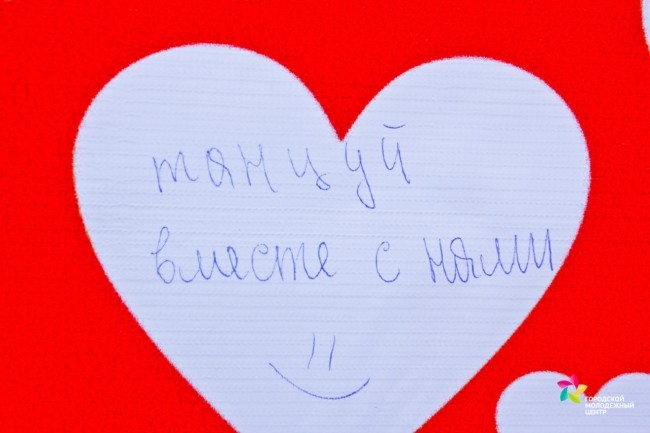 танцуй
вместе с нами
ГОРОДСКОЙ
МОЛОДЕЖНЫЙ
ЦЕНТР